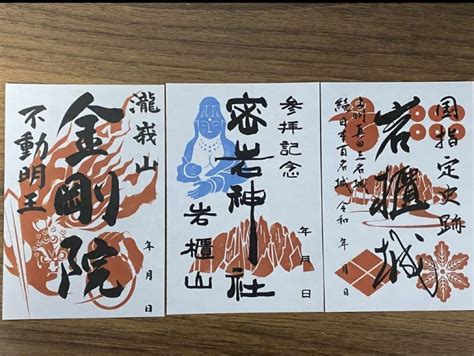 国指定史跡
岩櫃城
上州真田三名城
続日本百名城 令和 年 月 日
参拝記念
密岩神社
岩櫃山
年 月 日
瀧峩山
金剛院
不動明王
年 月 日